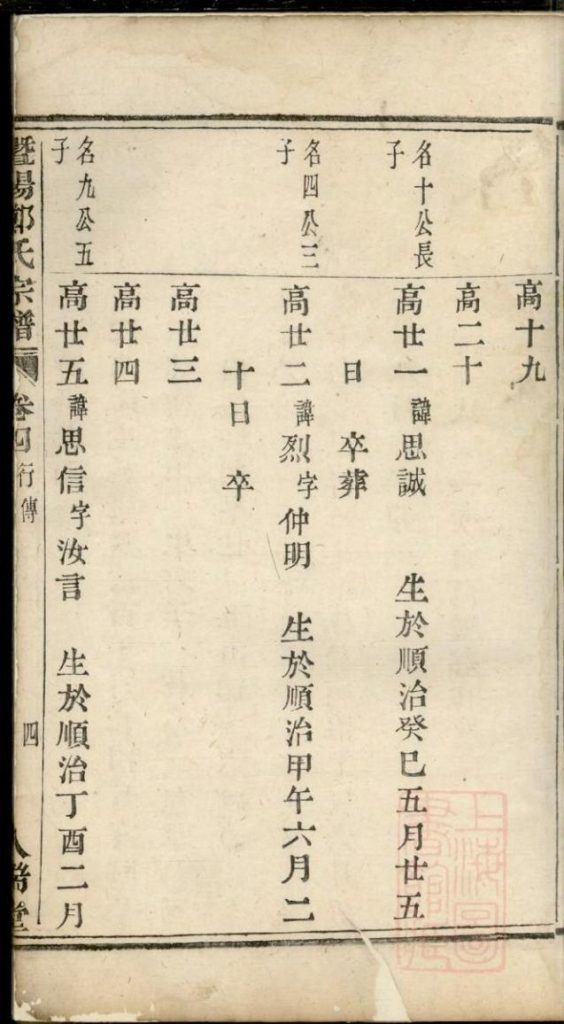 高十九
高二十
名十公長
子
高廿一 諱思誠 生於順治癸巳五月廿五
日 卒葬
名四公三
子
高廿二 諱烈字仲明 生於順治甲午六月二
十日 卒
高廿三
高廿四
名九公五
子
高廿五 諱思信字汝言 生於順治丁酉二月
暨陽 氏宗譜 卷四 行傳 四 堂
上海圖